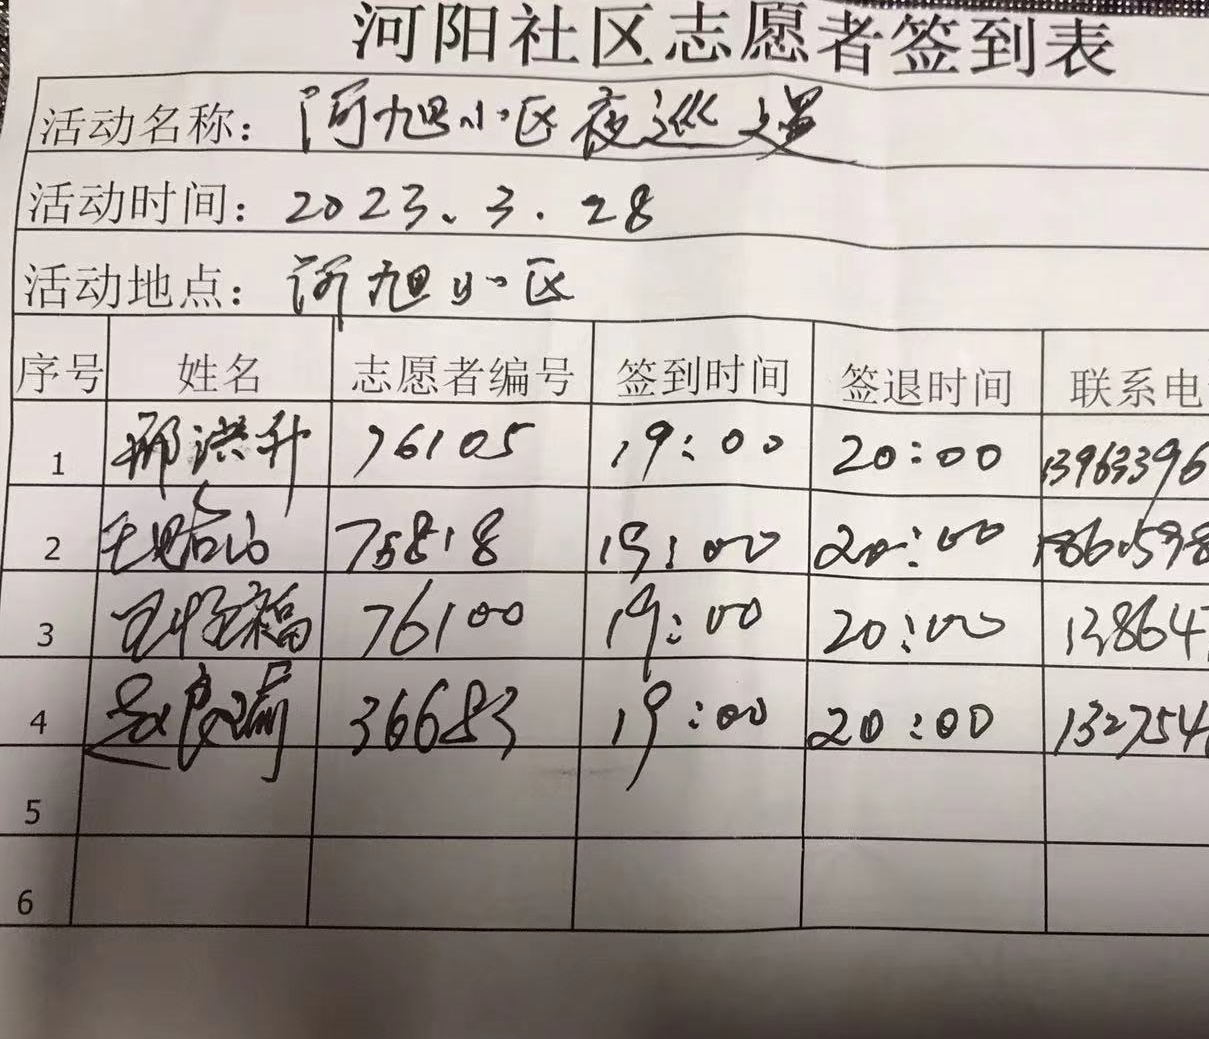 河阳社区志愿者签到表
活动名称：河旭小区夜巡逻
活动时间：2023.3.28
活动地点：河旭小区
序号 姓名 志愿者编号 签到时间 签退时间 联系电
1 邢洪升 76105 19:00 20:00 13963396
2 75818 19:00 20:00 1860598
3 76100 19:00 20:00 13864
4 36683 19:00 20:00 132754
5
6